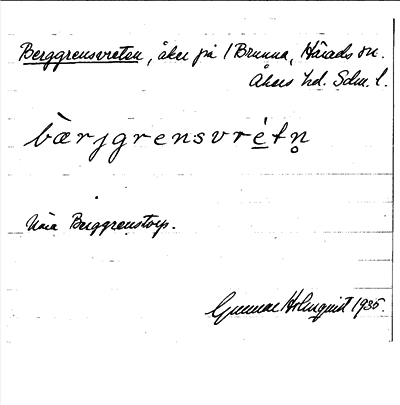 Berggrensvreten, åker på 1 Brunna, Härads sn.
Åkers hd. Sdm. l.
bæ̀rjgrensvré̱tn̥
Nära Berggrenstorp.
Gunnar Holmquist 1935.